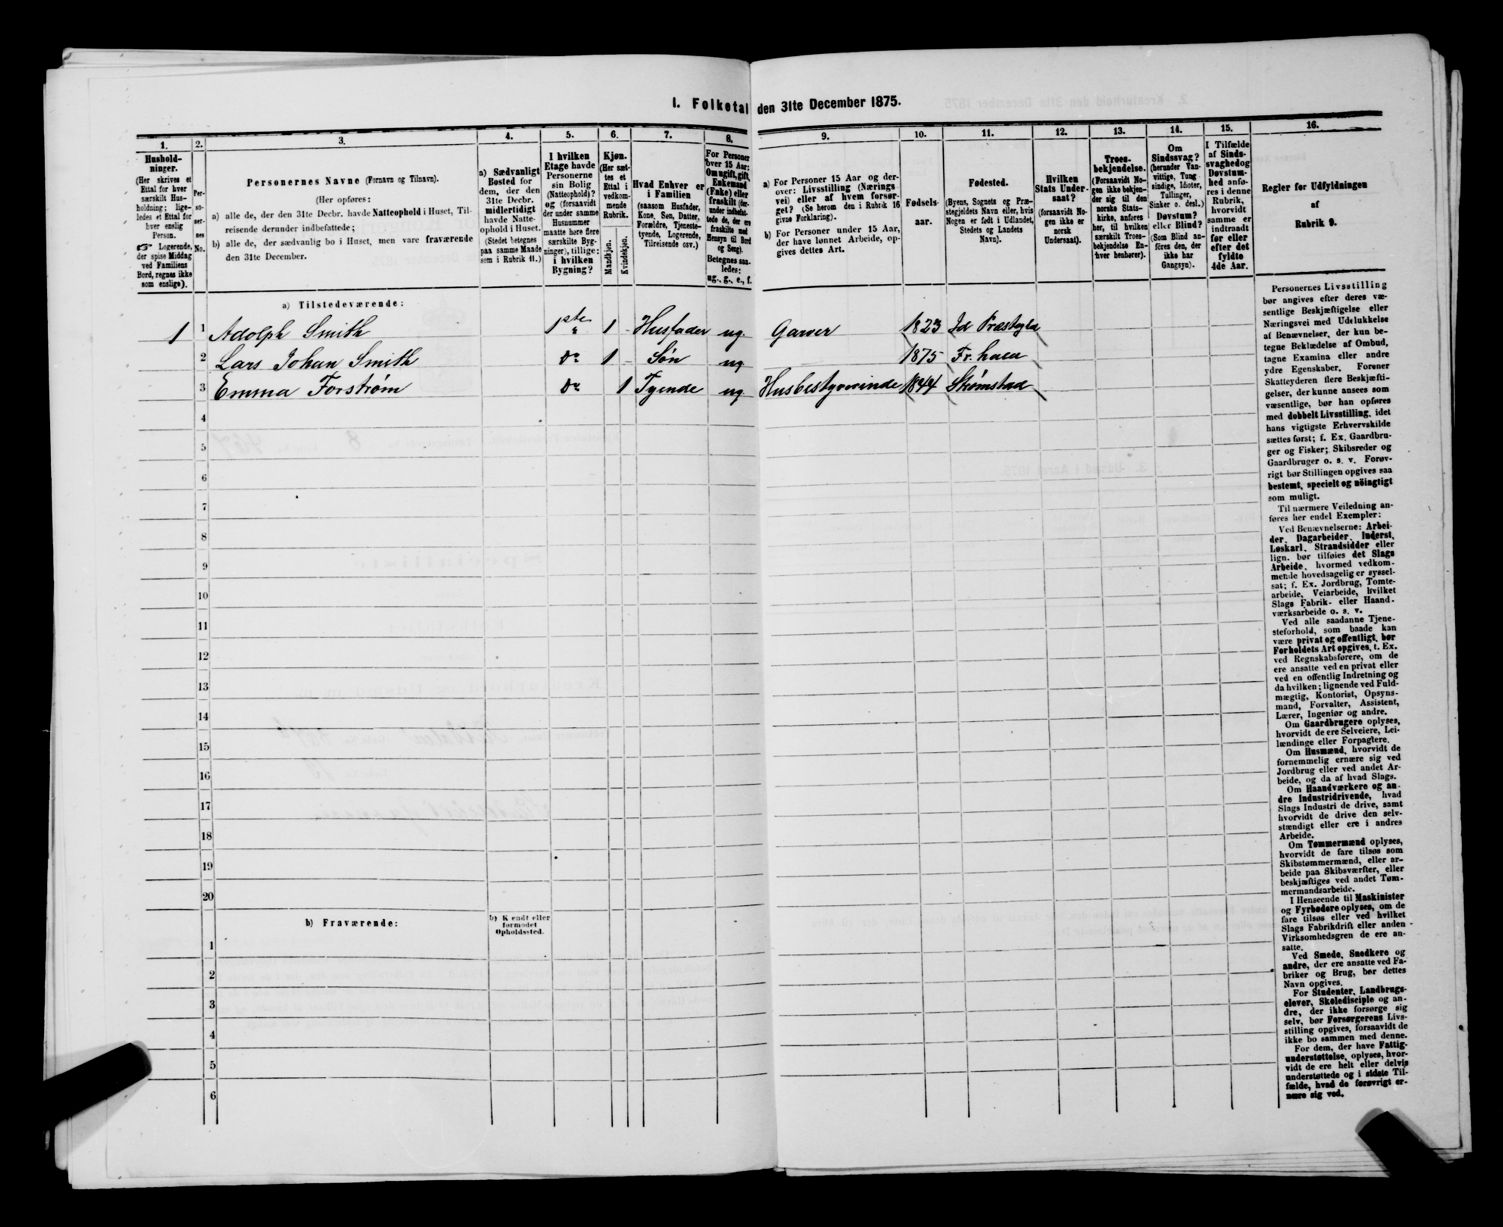 1. Folketal den 31te December 1875.
1. 2. 3. 4. 5. 6. 7. 8. 9. 10. 11. 12. 13. 14. 15. 16.
Hushold-
ninger.
(Her skrives et
Ettal for hver
særskilt Hus-
holdning; lige-
ledes et Ettal for
hver enslig
Person.
☞ Logerende,
der spise Middag
ved Familiens
Bord, regnes ikke
som enslige).
Per-
so-
ner-
nes
No.
Personernes Navne (Fornavn og Tilnavn).
(Her opføres:
a) alle de, der den 31te Decbr. havde Natteophold i Huset, Til-
reisende derunder indbefattede;
b) alle de, der sædvanlig bo i Huset, men vare fraværende
den 31te December.
a) Sædvanligt
Bosted for
dem, der den
31te Decbr.
midlertidigt
havde Natte-
ophold i Huset.
(Stedet betegnes
paa samme Maade
som i Rubrik 11.)
I hvilken
Etage havde
Personerne
sin Bolig
(Natteophold)?
og (forsaavidt
der under samme
Husnummer
maatte høre flere
særskilte Byg-
ninger), tillige:
i hvilken
Bygning?
Kjøn.
(Her sæt-
tes et
Ettal i
vedkom-
mende
Rubrik.
Mandkjøn.
Kvindekjøn.
Hvad Enhver er
i Familien
(saasom Husfader,
Kone, Søn, Datter,
Forældre, Tjeneste-
tyende, Logerende,
Tilreisende osv.)
For Personer
over 15 Aar:
Om ugift, gift,
Enkemand
(Enke) eller
fraskilt (der-
under indbefat-
tede de, der ere
fraskilte med
Hensyn til Bord
og Seng).
Betegnes saa-
ledes:
ug., g., e., f.
a) For Personer 15 Aar og der-
over: Livsstilling (Nærings-
vei) eller af hvem forsør-
get? (Se herom den i Rubrik 16
givne Forklaring).
b) For Personer under 15 Aar,
der have lønnet Arbeide, op-
gives dettes Art.
Fødsels-
aar.
Fødested.
(Byens, Sognets og Præ-
stegjeldets Navn eller, hvis
Nogen er født i Udlandet,
Stedets og Landets
Navn).
Hvilken
Stats Under-
saat?
(forsaavidt No-
gen ikke er
norsk
Undersaat).
Troes-
bekjendelse.
(Forsaavidt No-
gen ikke bekjen-
der sig til den
norske Stats-
kirke, anføres
her, til hvilken
særskilt Troes-
bekjendelse En-
hver henhører).
Om
Sindssvag?
(herunder Van-
vittige, Tung-
sindige, Idioter,
Tullinger,
Sinker o. desl.)
Døvstum?
eller Blind?
(Som Blind an-
føres den, der
ikke har
Gangsyn).
I Tilfælde
af Sinds-
svaghed og
Døvstum-
hed anfø-
res i denne
Rubrik,
hvorvidt
samme er
indtraadt
før eller
efter det
fyldte
4de Aar.
Regler for Udfyldningen
af
Rubrik 9.
a) Tilstedeværende:
1 1 Adolph Smith 1ste 1 Husfader ug. Garver 1823 Id Præstegld
2 Lars Johan Smith do 1 Søn ug 1875 Fr.hald
3 Emma Forstrøm do 1 Tyende ug. Husbestyrerinde 1844 Strømstad
4
5
6
7
8
9
10
11
12
13
14
15
16
17
18
19
20
b) Fraværende:
b) Kjendt eller
formodet
Opholdssted.
1
2
3
4
5
6
Personernes Livsstilling
bør angives efter deres væ-
sentlige Beskjæftigelse eller
Næringsvei med Udelukkelse
af Benævnelser, der kun be-
tegne Beklædelse af Ombud,
tagne Examina eller andre
ydre Egenskaber. Forener
Skatteyderen flere Beskjæfti-
gelser, der kunne ansees som
væsentlige, bør han opføres
med dobbelt Livsstilling, idet
hans vigtigste Erhvervskilde
sættes først; f. Ex. Gaardbru-
ger og Fisker; Skibsreder og
Gaardbruger o. s. v. Forøv-
rigt bør Stillingen opgives saa
bestemt, specielt og nöiagtigt
som muligt.
Til nærmere Veiledning an-
føres her endel Exempler:
Ved Benævnelserne: Arbei-
der, Dagarbeider, Inderst,
Løskarl, Strandsidder eller
lign. bør tilføies det Slags
Arbeide, hvormed vedkom-
mende hovedsagelig er syssel-
sat; f. Ex. Jordbrug, Tomte-
arbeide, Veiarbeide, hvilket
Slags Fabrik- eller Haand-
værksarbeide o. s. v.
Ved alle saadanne Tjene-
steforhold, som baade kan
være privat og offentligt, bør
Forholdets Art opgives, t. Ex.
ved Regnskabsførere, om de
ere ansatte ved en privat eller
ved en offentlig Indretning og
da hvilken; lignende ved Fuld-
mægtig, Kontorist, Opsyns-
mand, Forvalter, Assistent,
Lærer, Ingeniør og andre.
Om Gaardbrugere oplyses,
hvorvidt de ere Selveiere, Lei-
lændinge eller Forpagtere.
Om Husmænd, hvorvidt de
fornemmelig ernære sig ved
Jordbrug eller ved andet Ar-
beide, og da af hvad Slags.
Om Haandværkere og an-
dre Industridrivende, hvad
Slags Industri de drive, samt
hvorvidt de drive den selv-
stændigt eller ere i andres
Arbeide.
Om Tømmermænd oplyses,
hvorvidt de fare tilsøs som
Skibstømmermænd, eller ar-
beide paa Skibsværfter, eller
beskjæftiges ved andet Tøm-
mermandsarbeide.
I Henseende til Maskinister
og Fyrbødere oplyses, om de
fare tilsøs eller ved hvilket
Slags Fabrikdrift eller anden
Virksomhedsgren de ere an-
satte.
Ved Smede, Snedkere og
andre, der ere ansatte ved Fa-
briker og Brug, bør dettes
Navn opgives.
For Studenter, Landbrugs-
elever, Skoledisciple og an-
dre, der ikke forsørge sig
selv, bør Forsørgerens Livs-
stilling opgives, forsaavidt de
ikke bo sammen med denne.
For dem, der have Fattig-
understøttelse, oplyses, hvor-
vidt de ere helt eller delvis
understøttede og i sidste Til-
fælde, hvad de forøvrigt er-
nære sig ved.